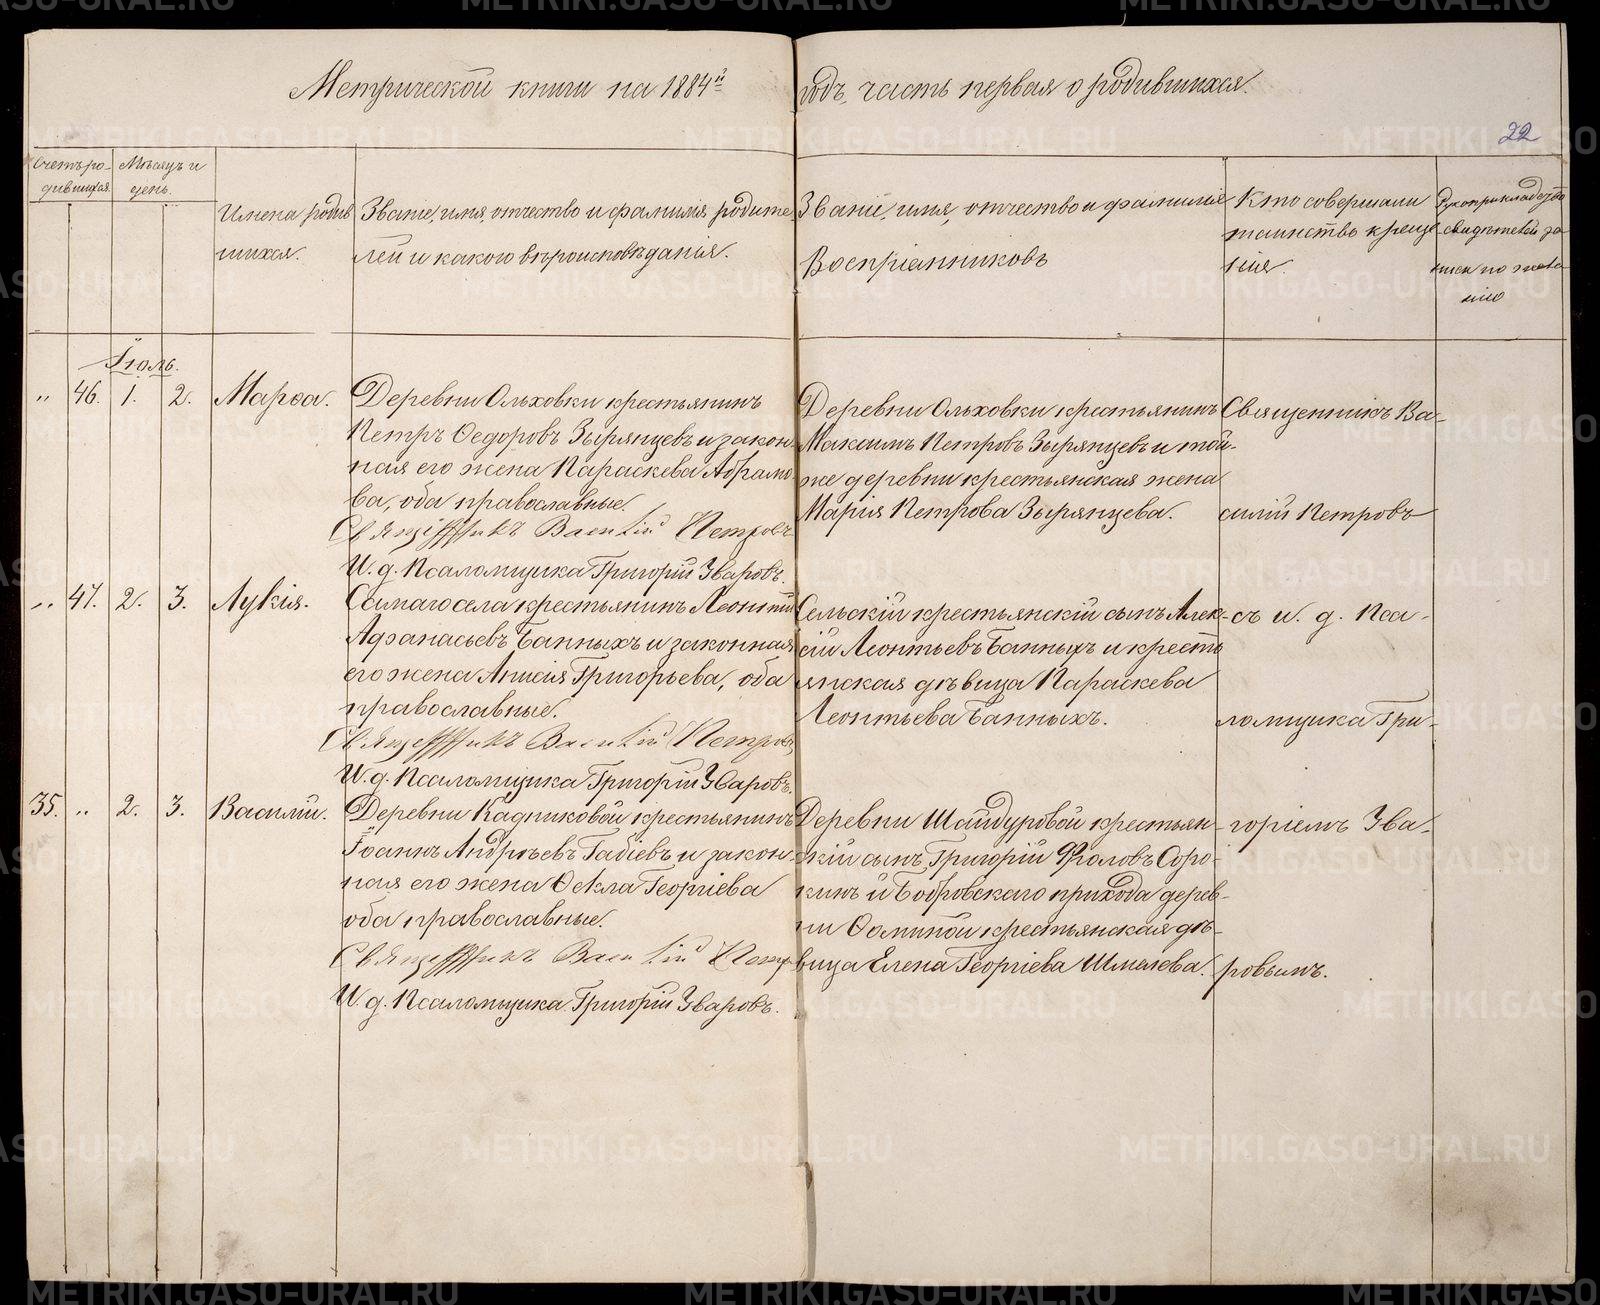 Метрической книги на 1884й годъ, часть первая о родившихся.
22
Счетъ ро-
дившихся.
Мѣсяцъ и
день.
Имена родив
шихся.
Званіе, имя, отчество и фамилія родите
лей и какого вѣроисповѣданія.
Званіе, имя, отчество и фамилія
Воспріемниковъ
Кто совершалъ
таинство креще
нія.
Рукоприкладство
свидѣтелей за
писи по жела
нію
Іюль.
" 46. 1. 2. Марѳа.
Деревни Ольховки крестьянинъ
Петръ Ѳедоровъ Зырянцевъ и закон
ная его жена Параскева Абрамо
ва, оба православные.
Священникъ Василій Петровъ
И. д. Псаломщика Григорій Зваровъ.
Деревни Ольховки крестьянинъ
Максимъ Петровъ Зырянцевъ и той-
же деревни крестьянская жена
Марія Петрова Зырянцева.
Священникъ Ва-
силій Петровъ
" 47. 2. 3. Лукія.
Самаго села крестьянинъ Леонтій
Афанасьевъ Банныхъ и законная
его жена Анисія Григорьева, оба
православные.
Священникъ Василій Петровъ
И. д. Псаломщика Григорій Зваровъ.
Сельскій крестьянскій сынъ Алек-
сій Леонтьевъ Банныхъ и кресть
янская дѣвица Параскева
Леонтьева Банныхъ.
съ и. д. Пса-
ломщика Гри-
35. " 2. 3. Василій.
Деревни Кадниковой крестьянинъ
Іоаннъ Андреевъ Габіевъ и закон-
ная его жена Ѳекла Георгіева
оба православные.
Священникъ Василій Петр
И. д. Псаломщика Григорій Зваровъ.
Деревни Шайдуровой крестьян-
скій сынъ Григорій Фроловъ Соро-
кинъ и Бобровскаго прихода дерев-
ни Ѳоминой крестьянская дѣ-
вица Елена Георгіева Шмелева.
горіемъ Зва-
ровымъ.
METRIKI.GASO-URAL.RU